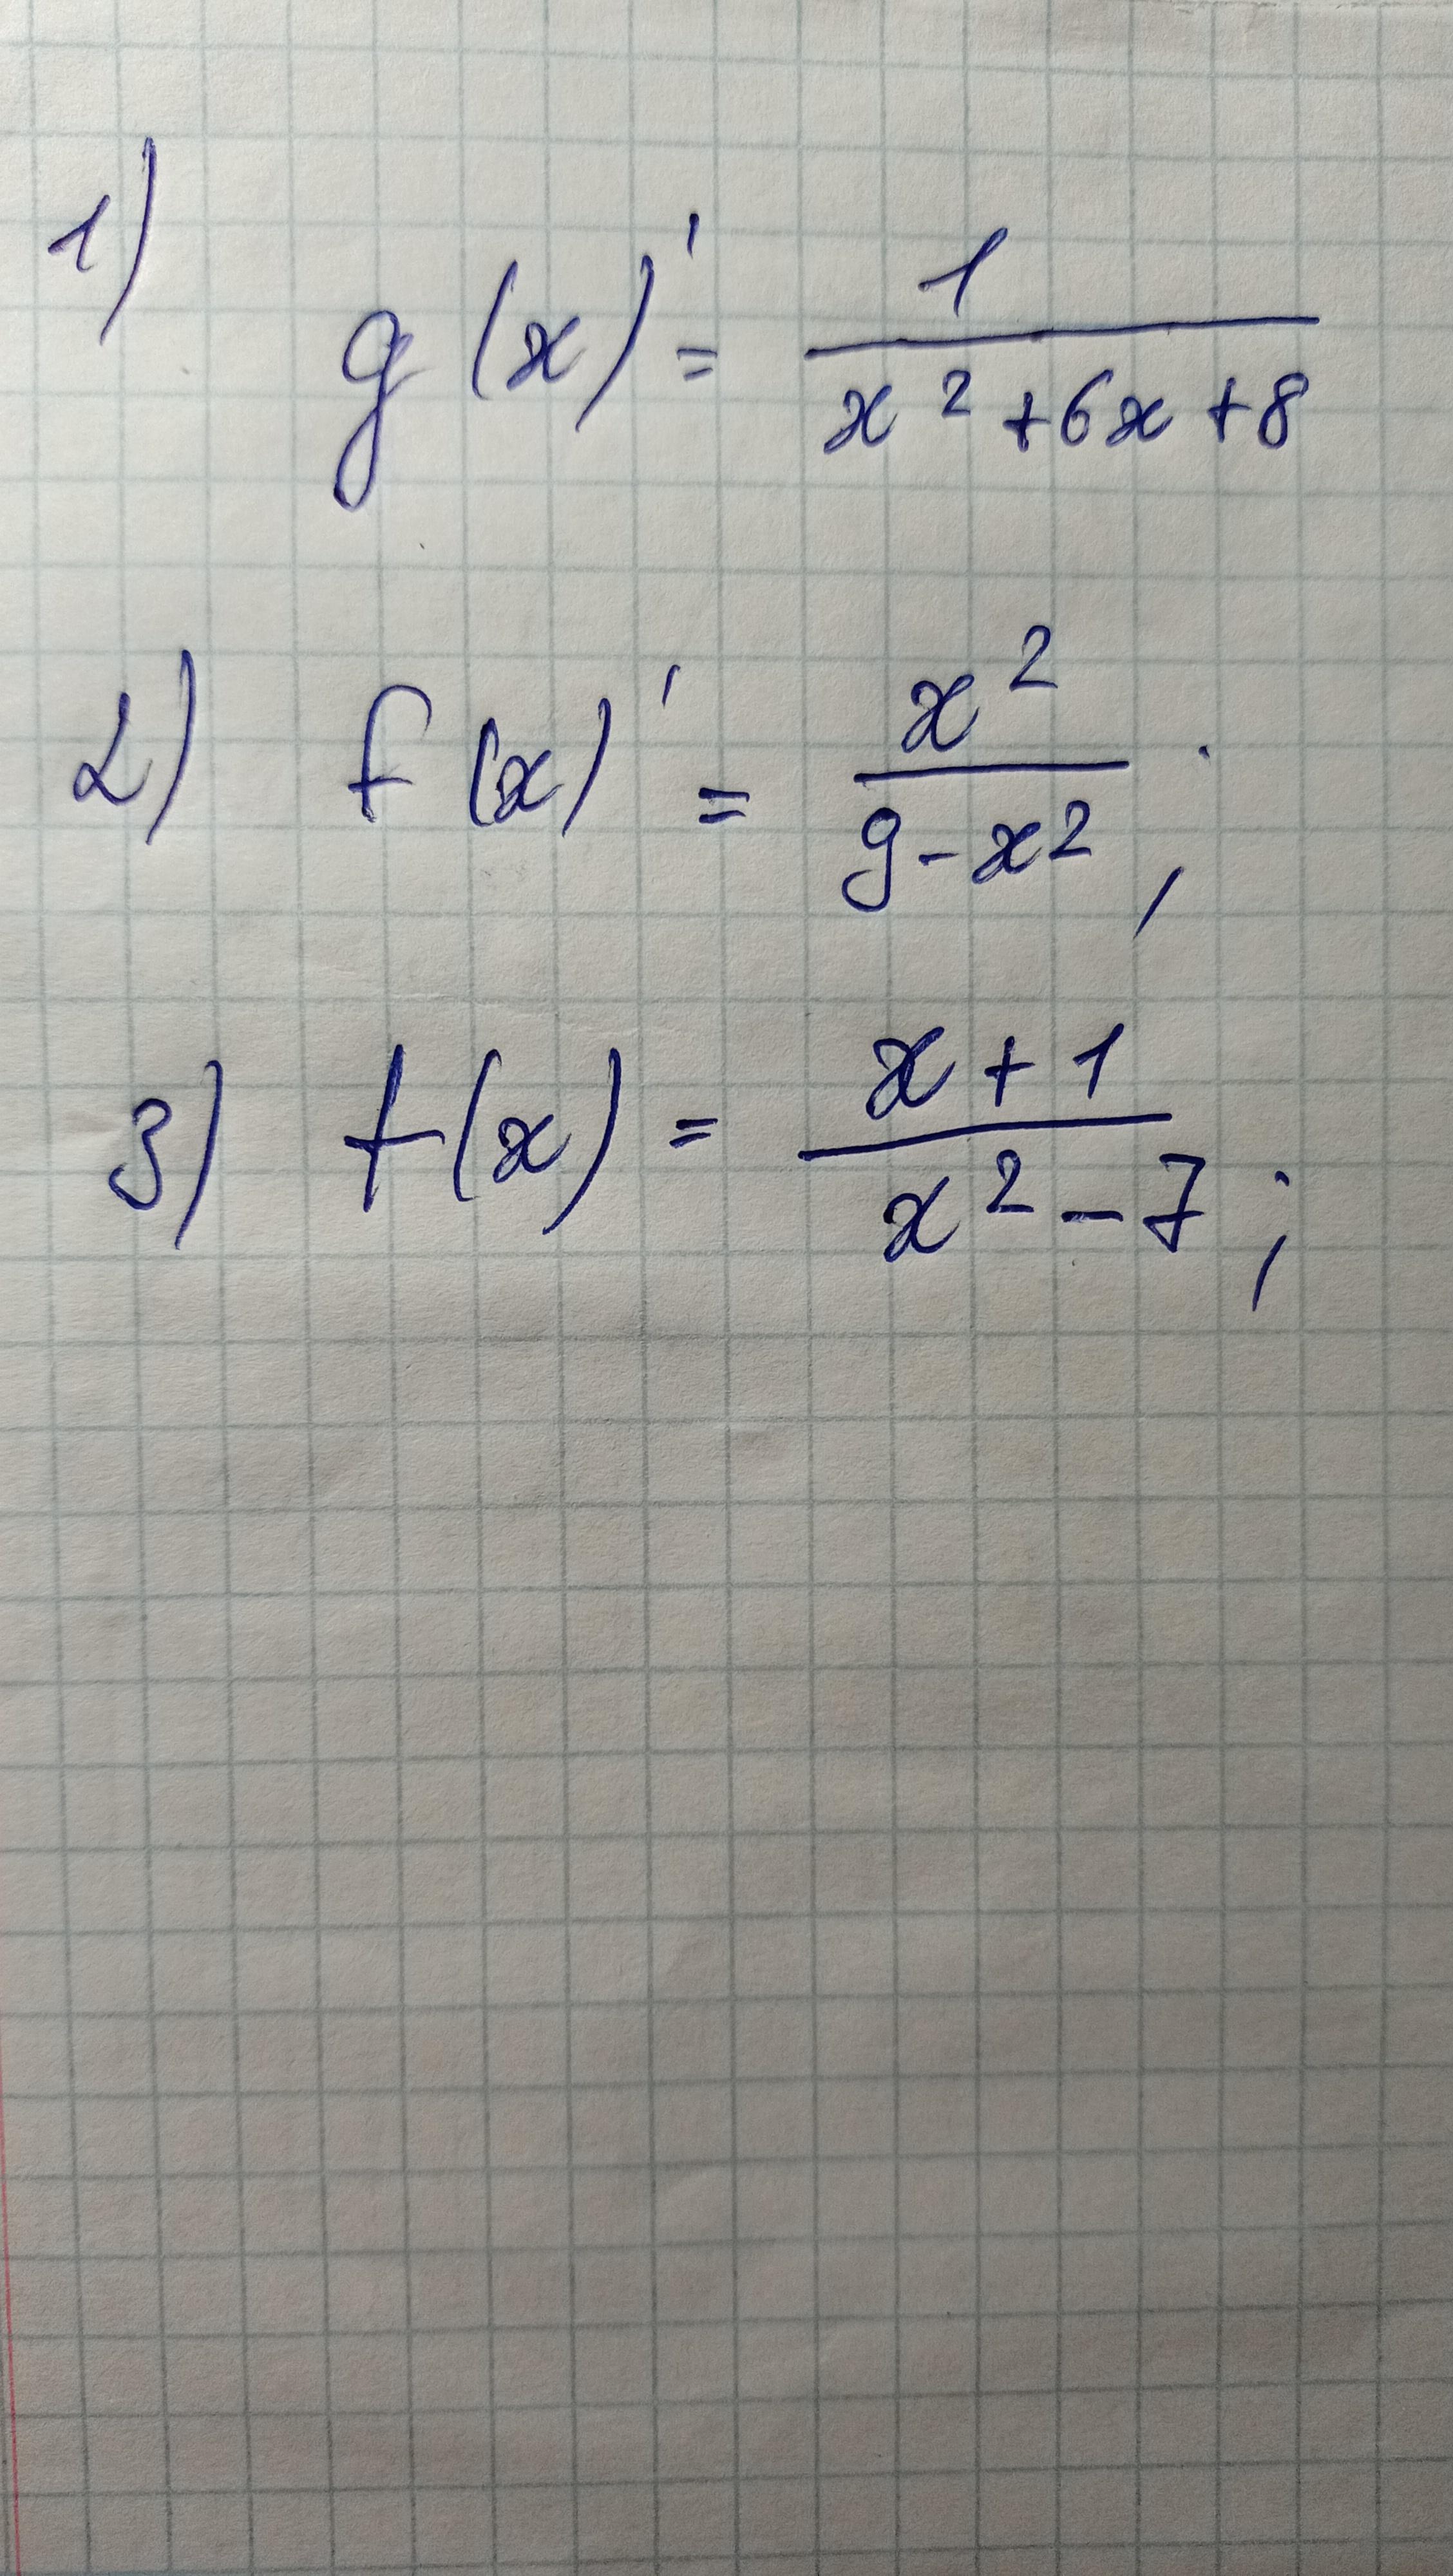 1) g(x)' = 1/(x² + 6x + 8)
2) f(x)' = x²/(9 - x²);
3) f(x) = (x + 1)/(x² - 7);